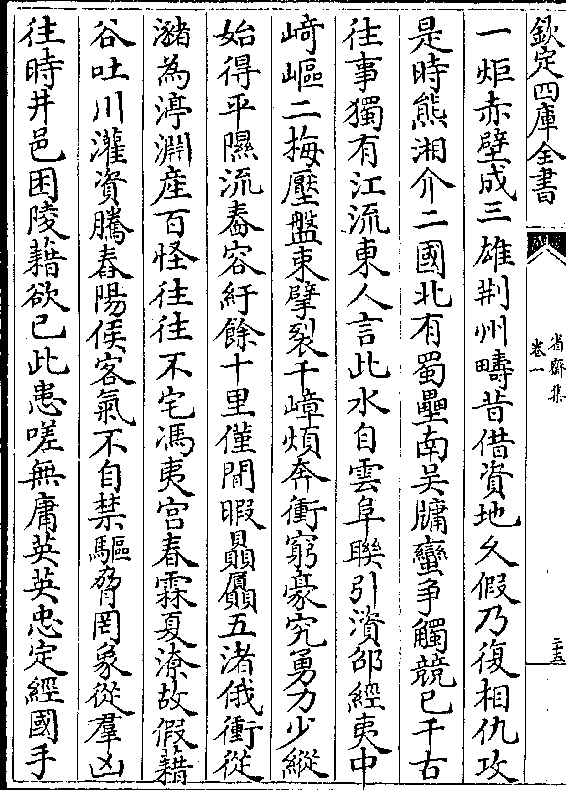 欽定四庫全書
省齋集
卷一
二十五
一炬赤壁成三雄荆州疇昔借資地久假乃復相仇攻
是時熊湘介二國北有蜀壘南吳牗蠻争觸競已千古
往事獨有江流東人言此水自雲阜聯引濆邵經夷中
﨑嶇二梅壓盤束擘裂千嶂煩奔衝窮豪究勇力少縱
始得平隰流舂容紆餘十里僅閒暇贔屭五渚俄衝從
瀦為渟淵産百怪往往不宅馮夷宫春霖夏潦故假藉
谷吐川灌資騰舂陽侯客氣不自禁驅脅罔象從羣凶
往時井邑困陵藉欲已此患嗟無庸英英忠定經國手